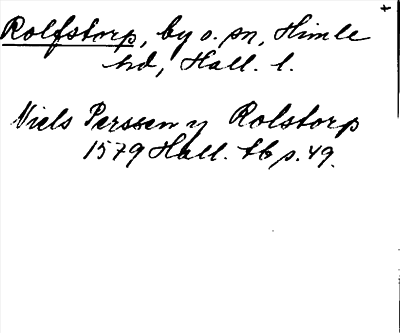 Rolfstorp, by o. sn, Himle
hd, Hall. l.
Niels Perssen y Rolstorp
1579 Hall. tb s. 49.